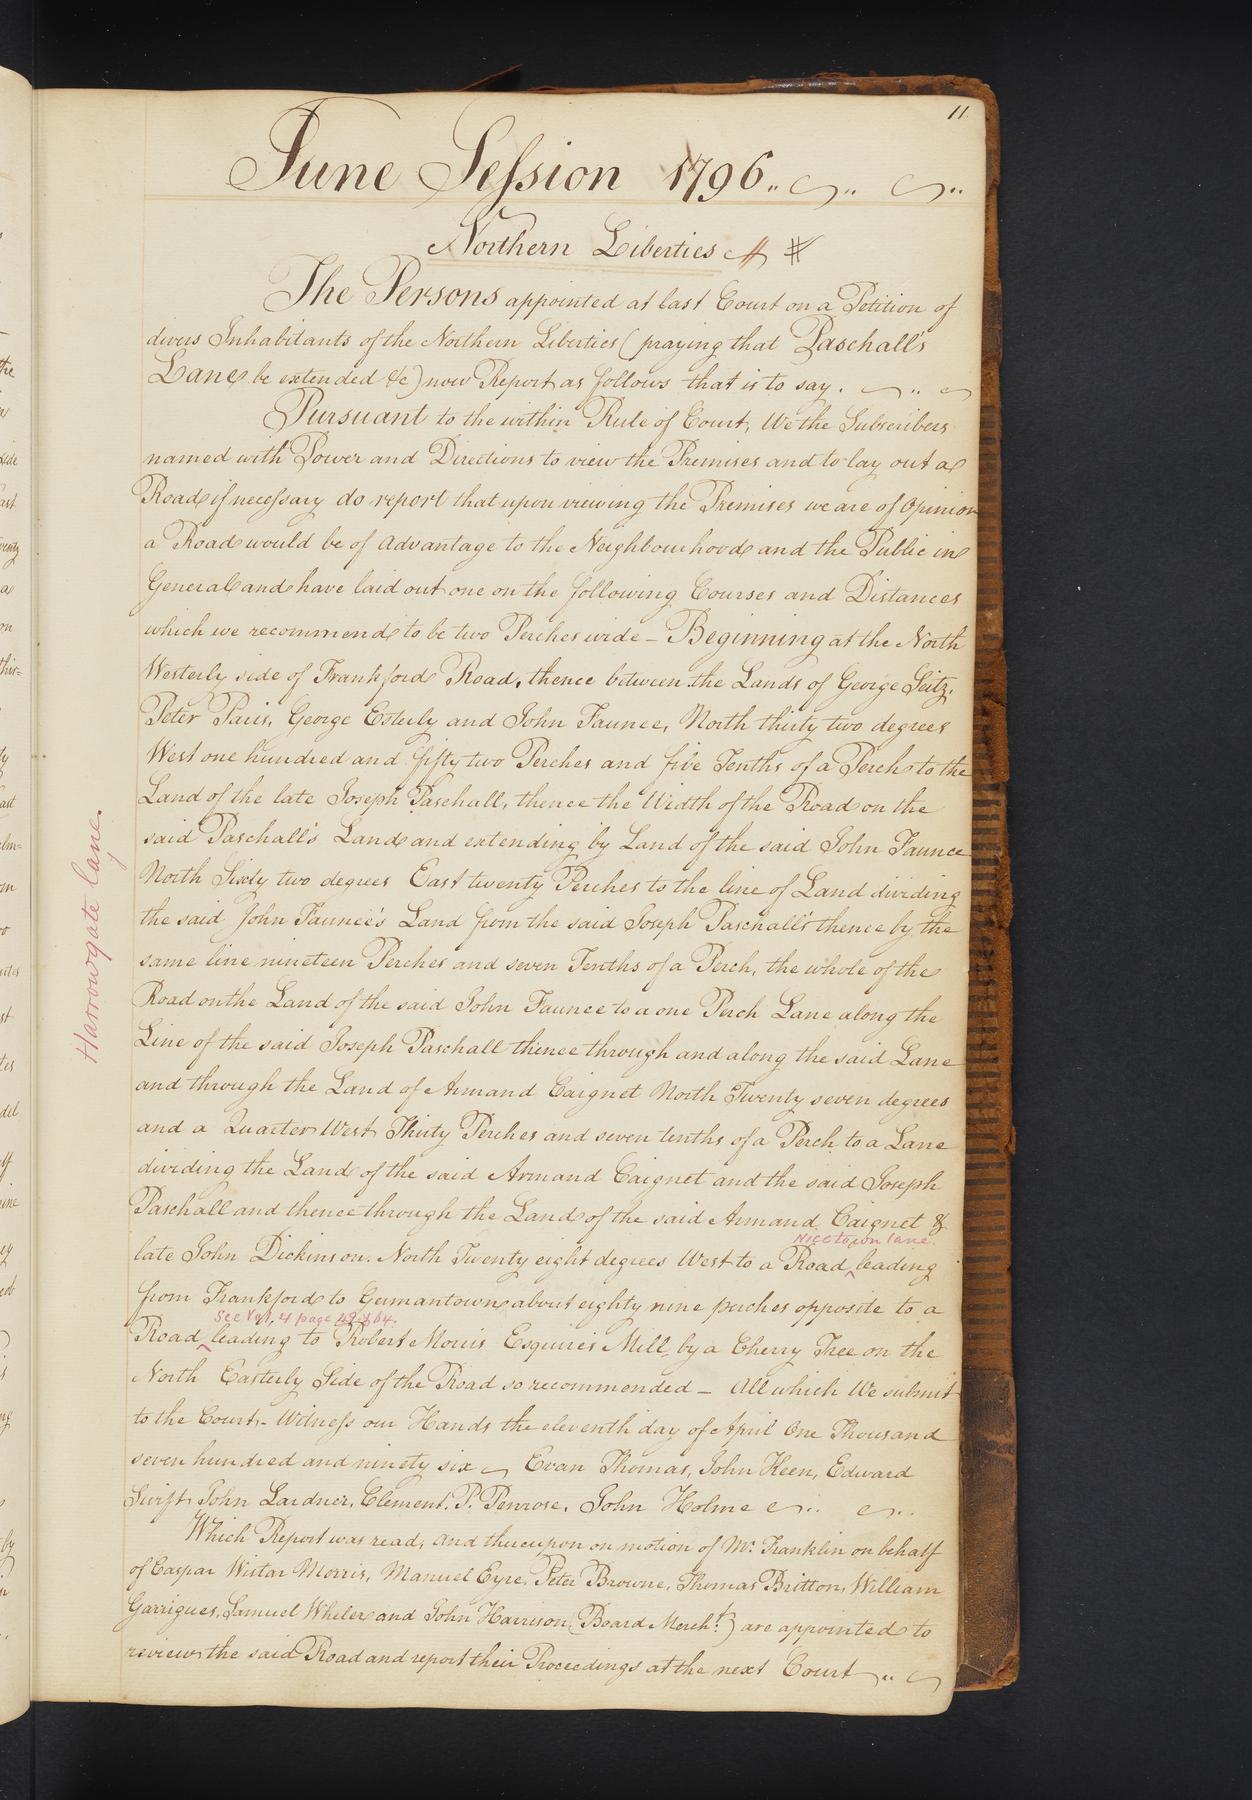 11.
June Session 1796.
Northern Liberties #
The Persons appointed at last Court on a Petition of
divers Inhabitants of the Northern Liberties (praying that Paschall's
Lane be extended &c) now Report as follows that is to say.
Pursuant to the within Rule of Court, We the Subscribers
named with Power and Directions to view the Premises and to lay out a
Road if necessary do report that upon viewing the Premises we are of Opinion
a Road would be of Advantage to the Neighbourhood and the Public in
General and have laid out one on the following Courses and Distances
which we recommend to be two Perches wide - Beginning at the North
Westerly side of Frankford Road, thence between the Lands of George Seitz,
Peter Paris, George Esterly and John Faunce, North thirty two degrees
West one hundred and fifty two Perches and five Tenths of a Perch to the
Land of the late Joseph Paschall, thence the Width of the Road on the
said Paschall's Land and extending by Land of the said John Faunce
North Sixty two degrees East twenty Perches to the line of Land dividing
the said John Faunce's Land from the said Joseph Paschall's thence by the
same line nineteen Perches and seven Tenths of a Perch, the whole of the
Road on the Land of the said John Faunce to a one Perch Lane along the
Line of the said Joseph Paschall thence through and along the said Lane
and through the Land of Armand Caignet North Twenty seven degrees
and a Quarter West Thirty Perches and seven tenths of a Perch to a Lane
dividing the Land of the said Armand Caignet and the said Joseph
Paschall and thence through the Land of the said Armand Caignet &
Nicetown lane.
late John Dickinson. North Twenty eight degrees West to a Road ‸ leading
from Frankford to Germantown about eighty nine perches opposite to a
See Vol. 4 page 49 & 64.
Road ‸ leading to Robert Morris Esquires Mill by a Cherry Tree on the
North Easterly Side of the Road so recommended - All which We submit
to the Court - Witness our Hands the eleventh day of April One Thousand
seven hundred and ninety six Evan Thomas, John Keen, Edward
Swift, John Lardner, Clement. P. Penrose, John Holme
Which Report was read, and thereupon on motion of Mr. Franklin on behalf
of Caspar Wistar Morris, Manuel Eyre, Peter Browne, Thomas Britton, William
Garrigues, Samuel Wheler and John Harrison (Board Mercht.) are appointed to
review the said Road and report their Proceedings at the next Court
Harrowgate lane.